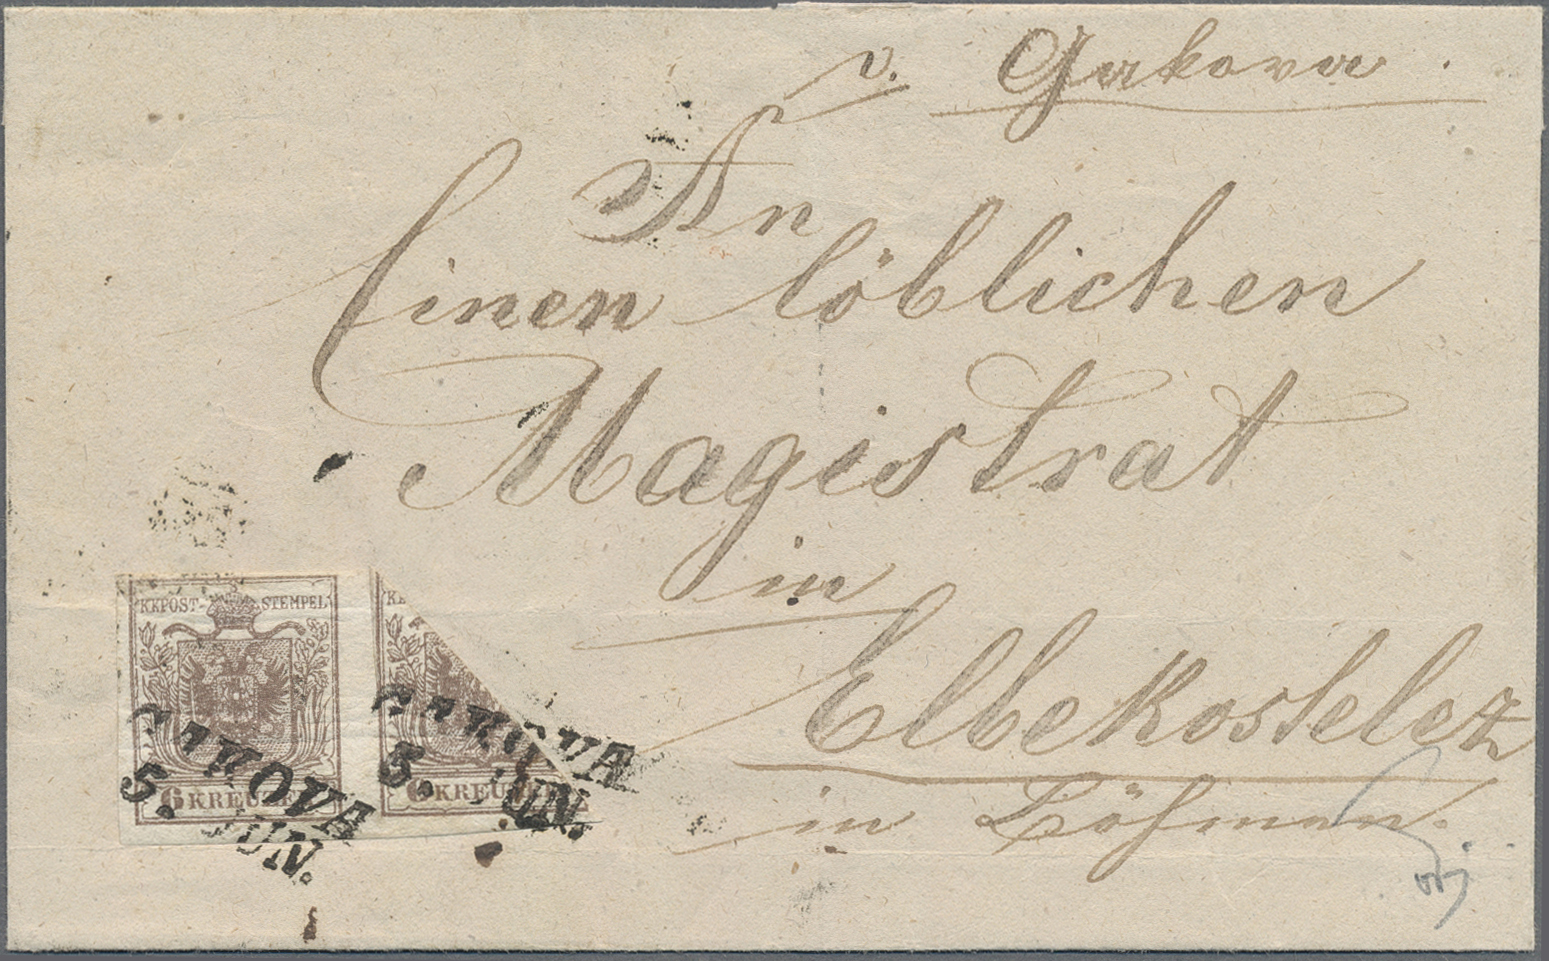 v. Gakova.
An
Einen löblichen
Magistrat
in
Elbekosteletz
in Böhmen.
KKPOST-STEMPEL
6 KREUZE
KK
6 KREU
KOVA
5. JUN.
KOVA
5. JUN.